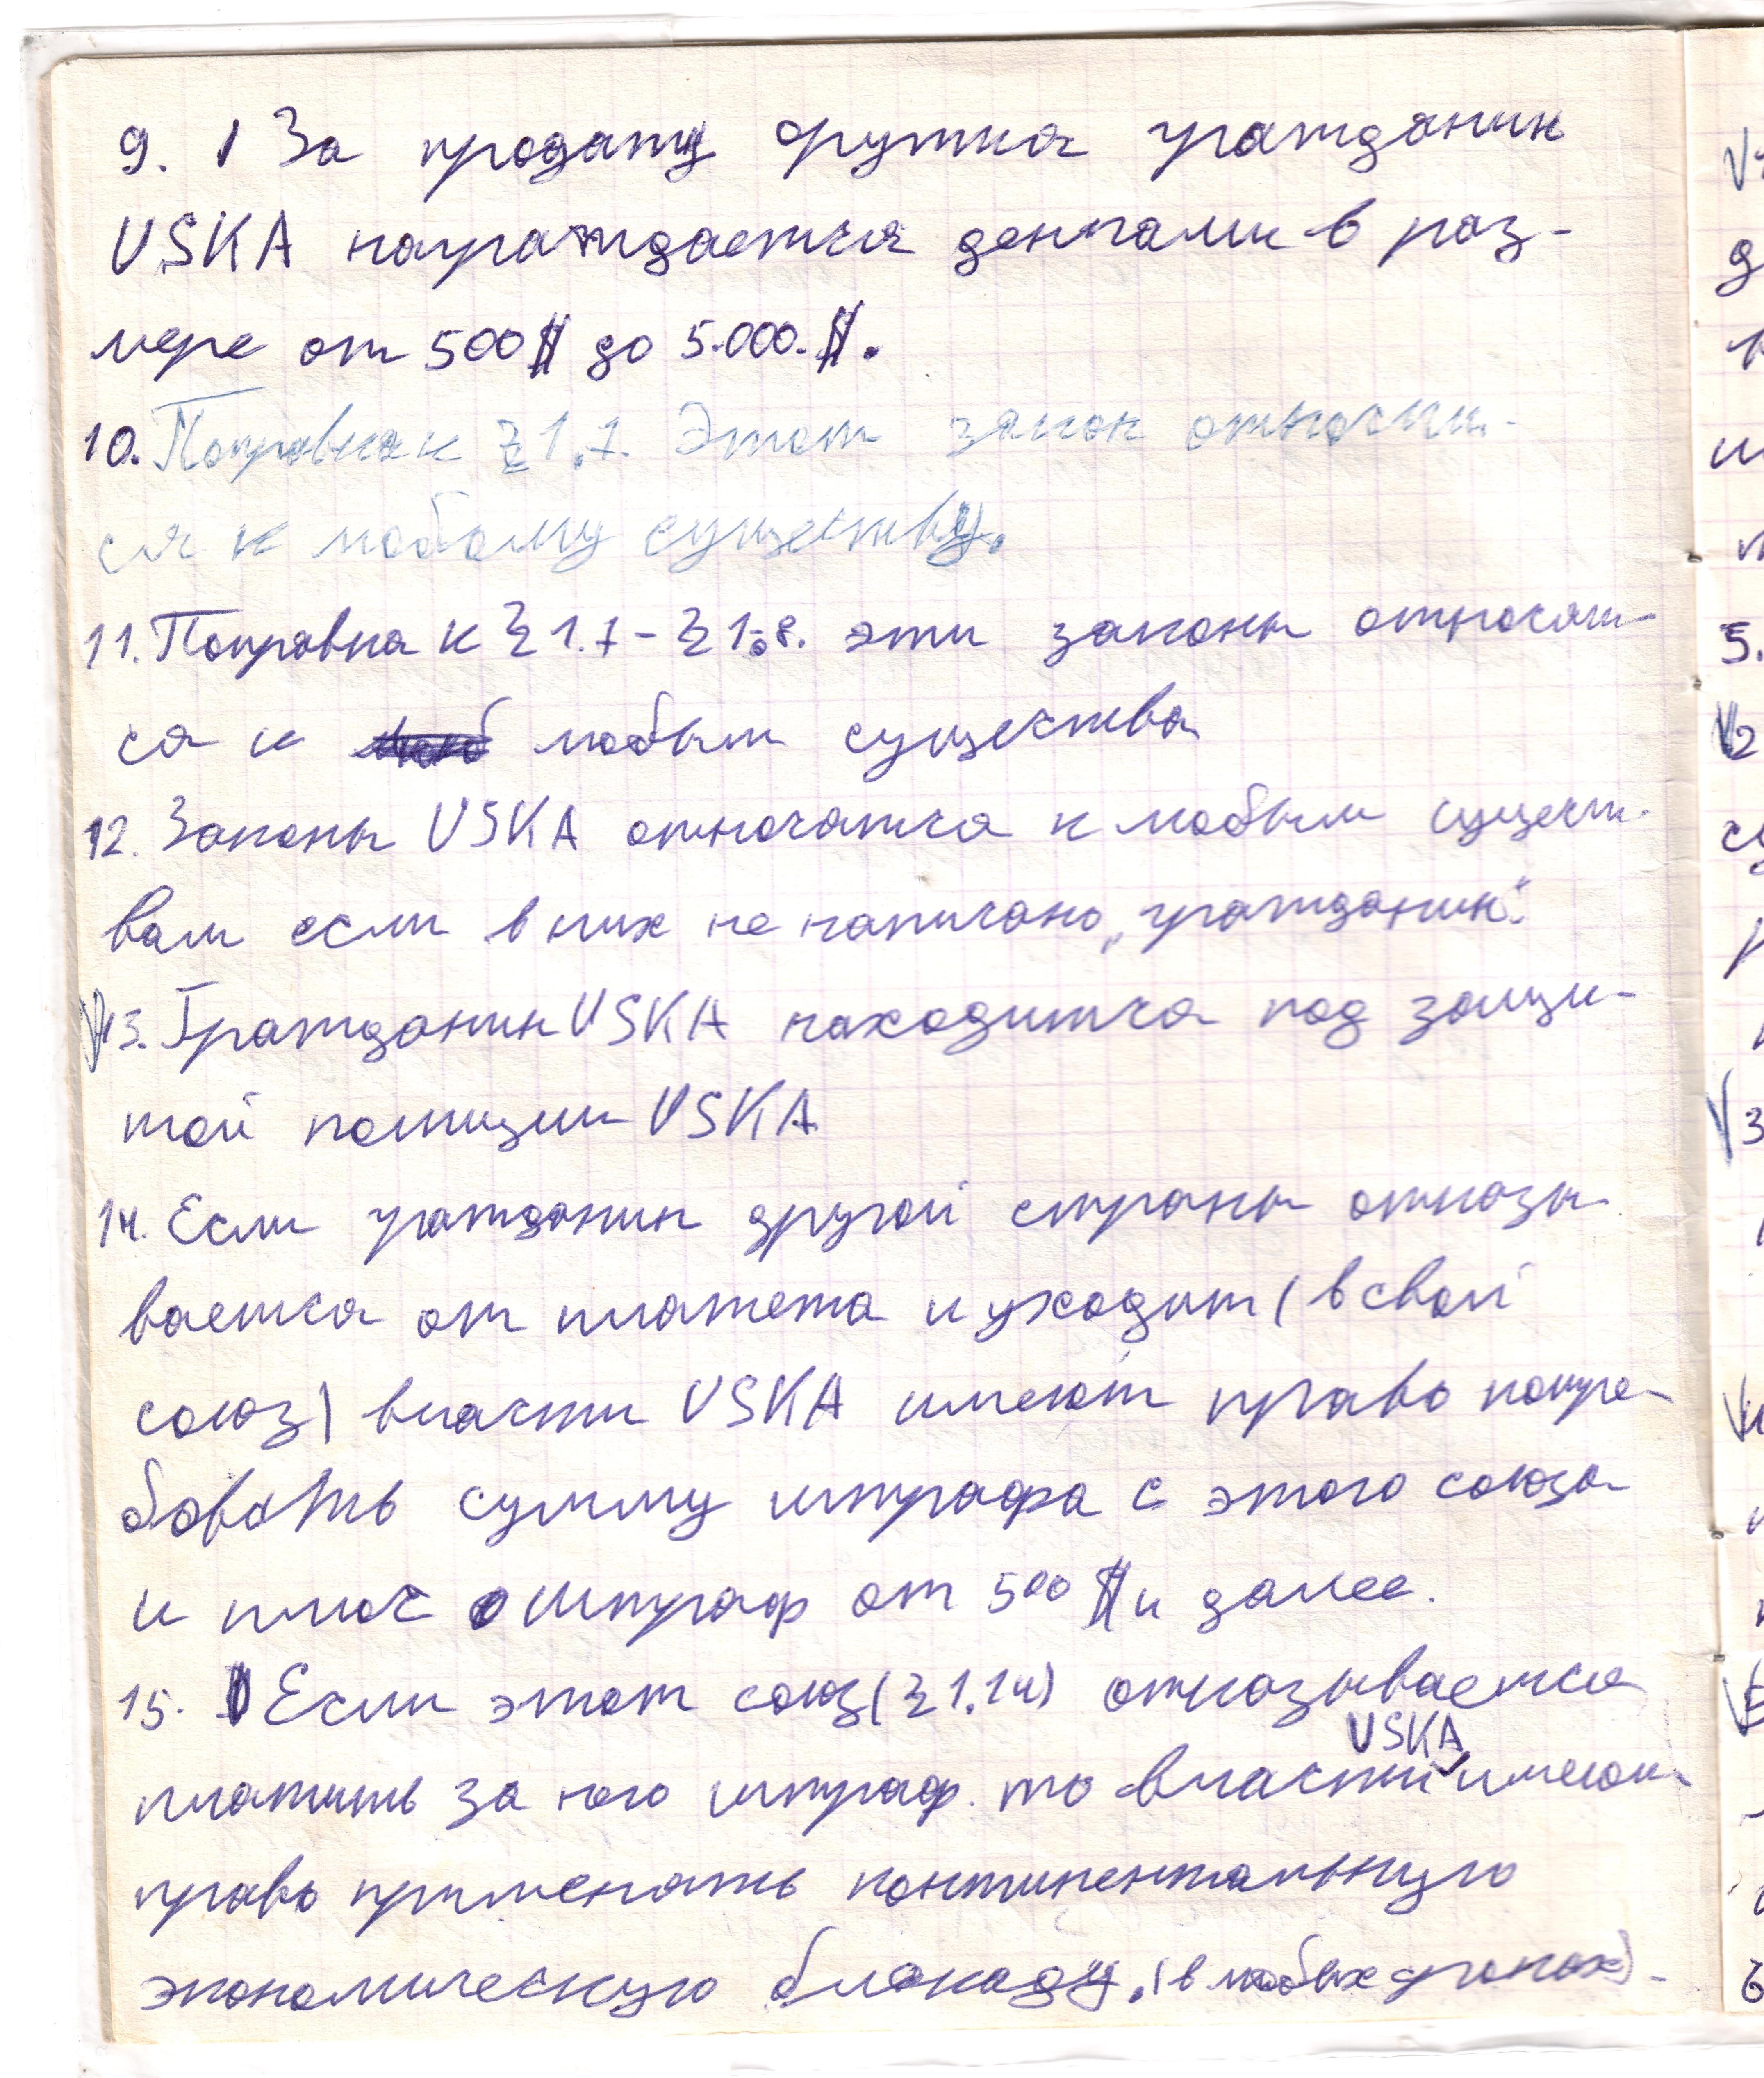 9. За продажу фрукта гражданин
USKA награждается денгами в раз-
мере от 500$ до 5.000.$.
10. Поправка к §1.7. Этот закон относит-
ся к любому существу.
11. Поправка к §1.7-§1.8. эти законы относят-
ся к любым существа
12. Законы USKA относятся к любым сущест-
вам если в них не написано „гражданин".
V13. Гражданин USKA находится под защи-
той полиции USKA
14. Если гражданин другой страны отказы-
вается от платежа и уходит (в свой
союз) власти USKA имеют право потре-
бовать сумму штрафа с этого союза
и плюс штраф от 500$ и далее.
15. Если этот союз (§1.14) отказывается
USKA
платить за него штраф. то власти имеют
право применять континентальную
экономическую блокаду. (в любых)
V
д
и
5.
V2
V3